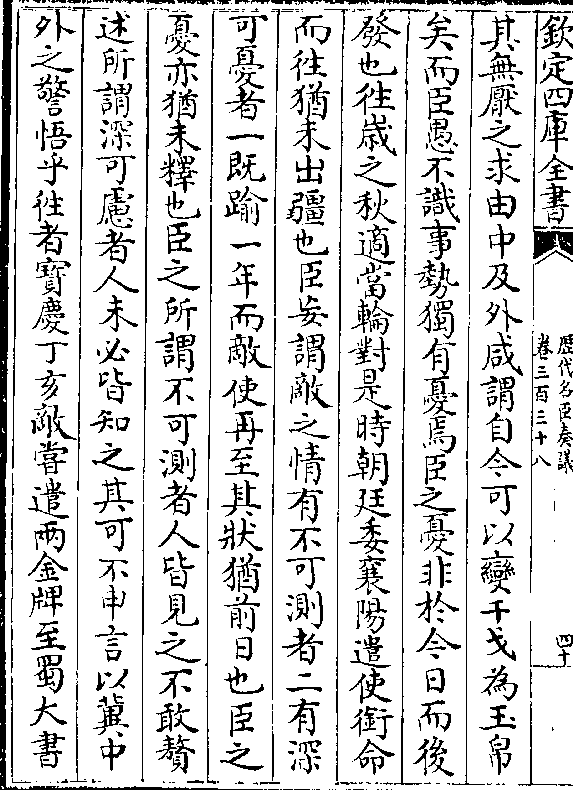 欽定四庫全書
歷代名臣奏議
卷三百三十八
四十
其無厭之求由中及外咸謂自今可以變干戈為玉帛
矣而臣愚不識事勢獨有憂焉臣之憂非於今日而後
發也往歲之秋適當輪對是時朝廷委襄陽遣使銜命
而往猶未出疆也臣妄謂敵之情有不可測者二有深
可憂者一既踰一年而敵使再至其狀猶前日也臣之
憂亦猶未釋也臣之所謂不可測者人皆見之不敢贅
述所謂深可慮者人未必皆知之其可不申言以冀中
外之警悟乎往者寶慶丁亥敵嘗遣兩金牌至蜀大書